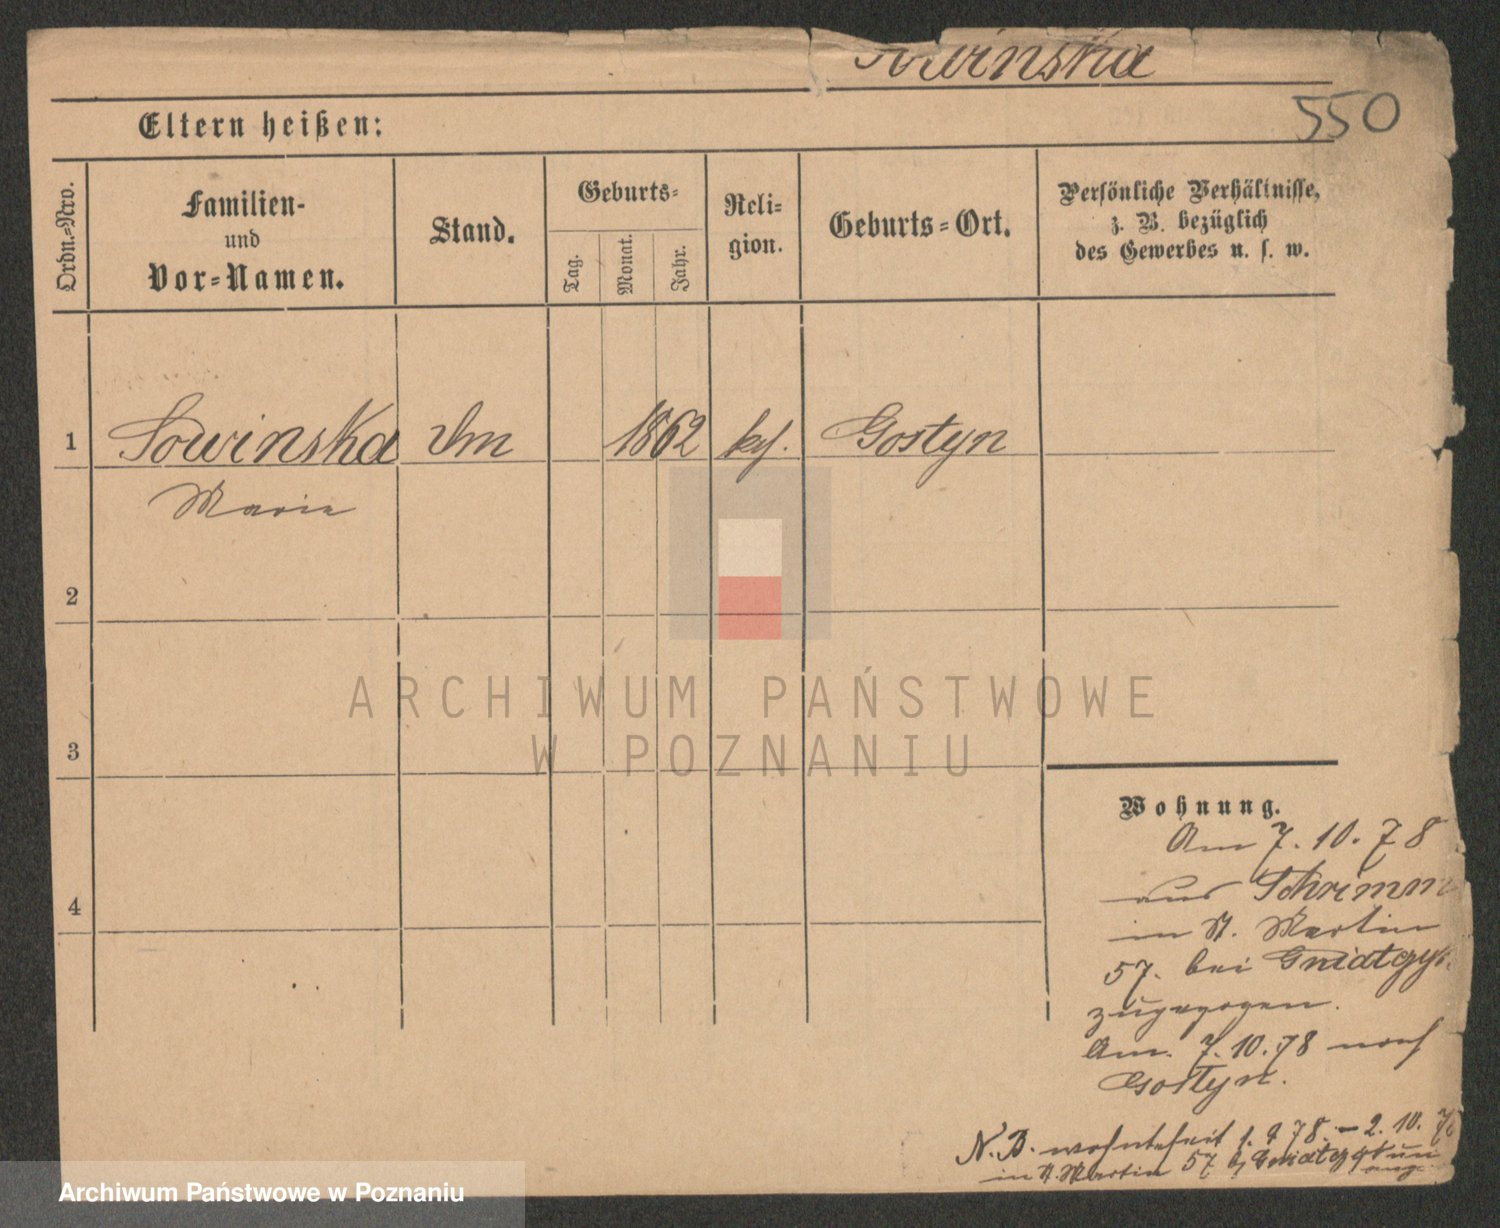 Sowinska
550
Eltern heißen:
Ordn.-Nro.
Familien-
und
Vor-Namen.
Stand.
Geburts-
Tag.
Monat.
Jahr.
Reli-
gion.
Geburts-Ort.
Persönliche Verhältnisse,
z. B. bezüglich
des Gewerbes u. s. w.
1 Sowinska 1862 Gostyn
Marie
2
3
4
ARCHIWUM PAŃSTWOWE
W POZNANIU
Wohnung.
Am 7. 10. 78
aus Schrimm
in St. Martin
57. bei
zugezogen.
Am. 7. 10. 78 nach
Gostyn.
N. B. wohnte seit 1. 9 78. – 2. 10. 78
in St. Martin 57 b/
Archiwum Państwowe w Poznaniu